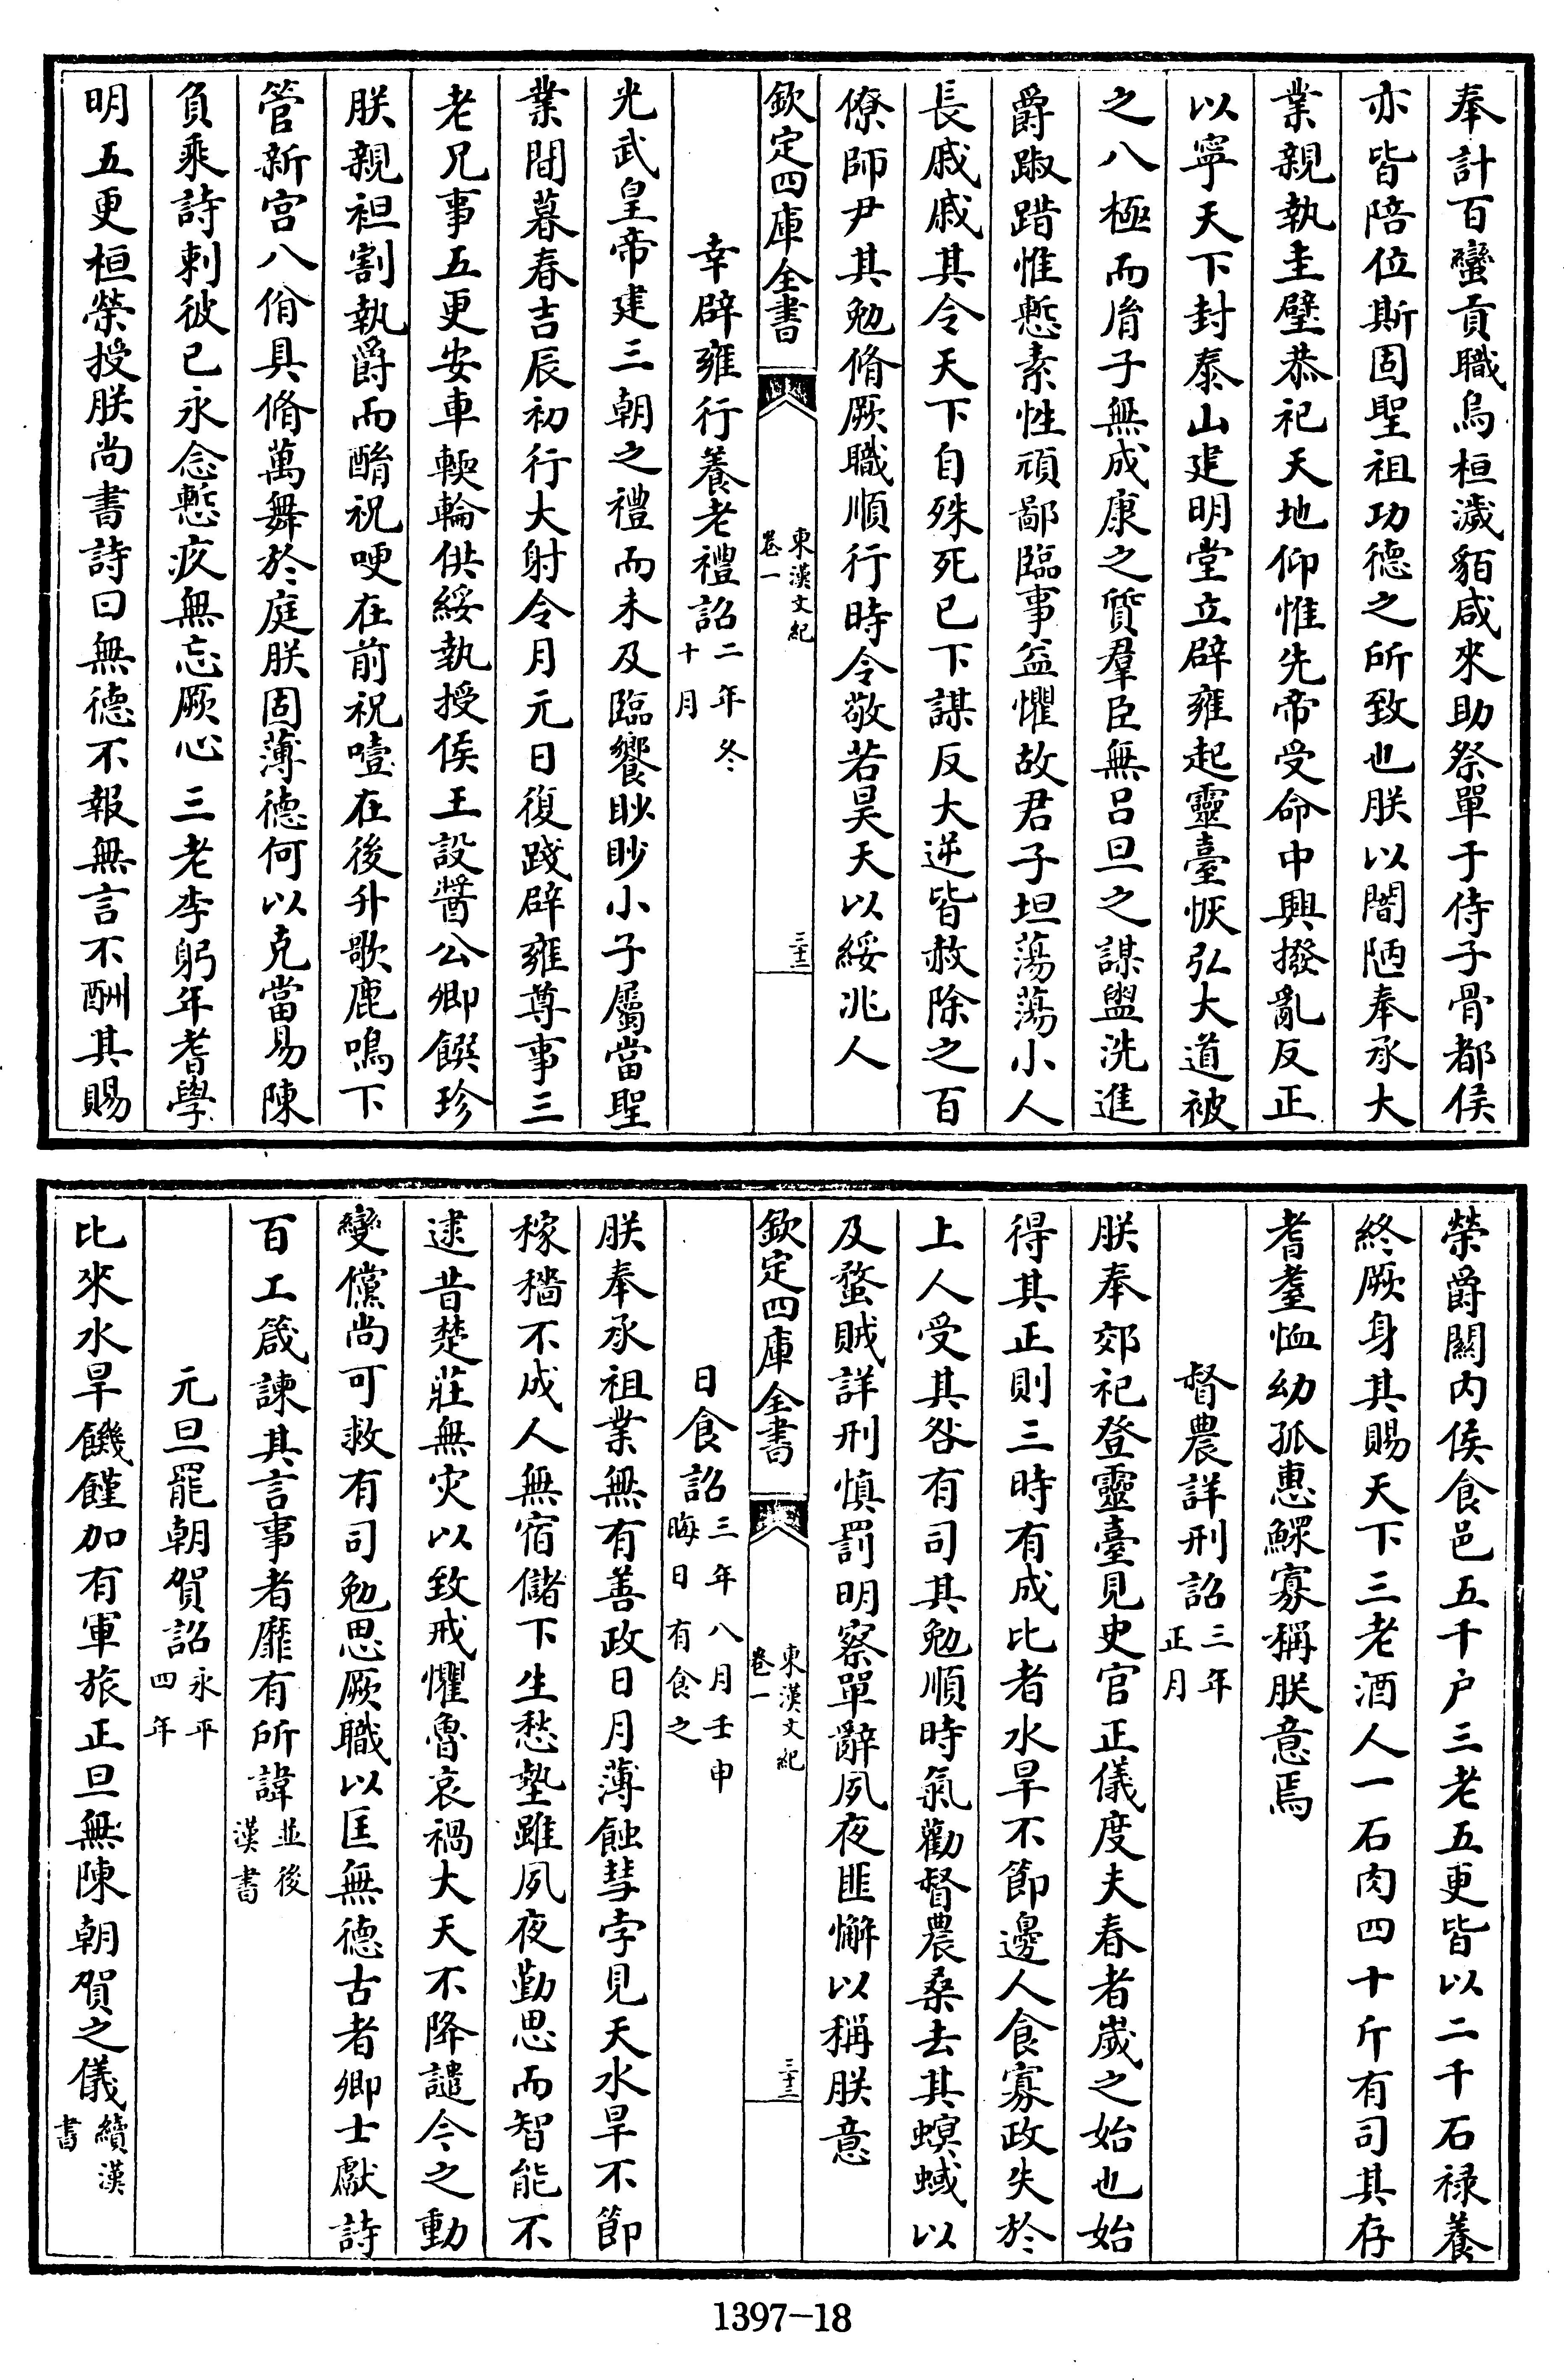 奉計百蠻貢職烏桓濊貊咸來助祭單于侍子骨都侯
亦皆陪位斯固聖祖功德之所致也朕以闇陋奉承大
業親執圭璧恭祀天地仰惟先帝受命中興撥亂反正
以寧天下封泰山建明堂立辟雍起靈臺恢弘大道被
之八極而胤子無成康之質羣臣無呂旦之謀盥洗進
爵踧踖惟慙素性頑鄙臨事益懼故君子坦蕩蕩小人
長戚戚其令天下自殊死已下謀反大逆皆赦除之百
僚師尹其勉脩厥職順行時令敬若昊天以綏兆人
欽定四庫全書
東漢文紀
卷一
三十二
幸辟雍行養老禮詔二年冬
十月
光武皇帝建三朝之禮而未及臨饗眇眇小子屬當聖
業間暮春吉辰初行大射令月元日復踐辟雍尊事三
老兄事五更安車輭輪供綏執授侯王設醬公卿饌珍
朕親袒割執爵而酳祝哽在前祝噎在後升歌鹿鳴下
管新宮八佾具脩萬舞於庭朕固薄德何以克當易陳
負乘詩刺彼己永念慙疚無忘厥心三老李躬年耆學
明五更桓榮授朕尚書詩曰無德不報無言不酬其賜
榮爵關内侯食邑五千户三老五更皆以二千石祿養
終厥身其賜天下三老酒人一石肉四十斤有司其存
耆耋恤幼孤惠鰥寡稱朕意焉
督農詳刑詔三年
正月
朕奉郊祀登靈臺見史官正儀度夫春者歲之始也始
得其正則三時有成比者水旱不節邊人食寡政失於
上人受其咎有司其勉順時氣勸督農桑去其螟蜮以
及蝥賊詳刑慎罰明察單辭夙夜匪懈以稱朕意
欽定四庫全書
東漢文紀
卷一
三十三
日食詔三年八月壬申
晦日有食之
朕奉承祖業無有善政日月薄蝕彗孛見天水旱不節
稼穡不成人無宿儲下生愁墊雖夙夜勤思而智能不
逮昔楚莊無灾以致戒懼魯哀禍大天不降譴今之動
變儻尚可救有司勉思厥職以匡無德古者卿士獻詩
百工箴諫其言事者靡有所諱並後
漢書
元旦罷朝賀詔永平
四年
比來水旱饑饉加有軍旅正旦無陳朝賀之儀續漢
書
1397-18